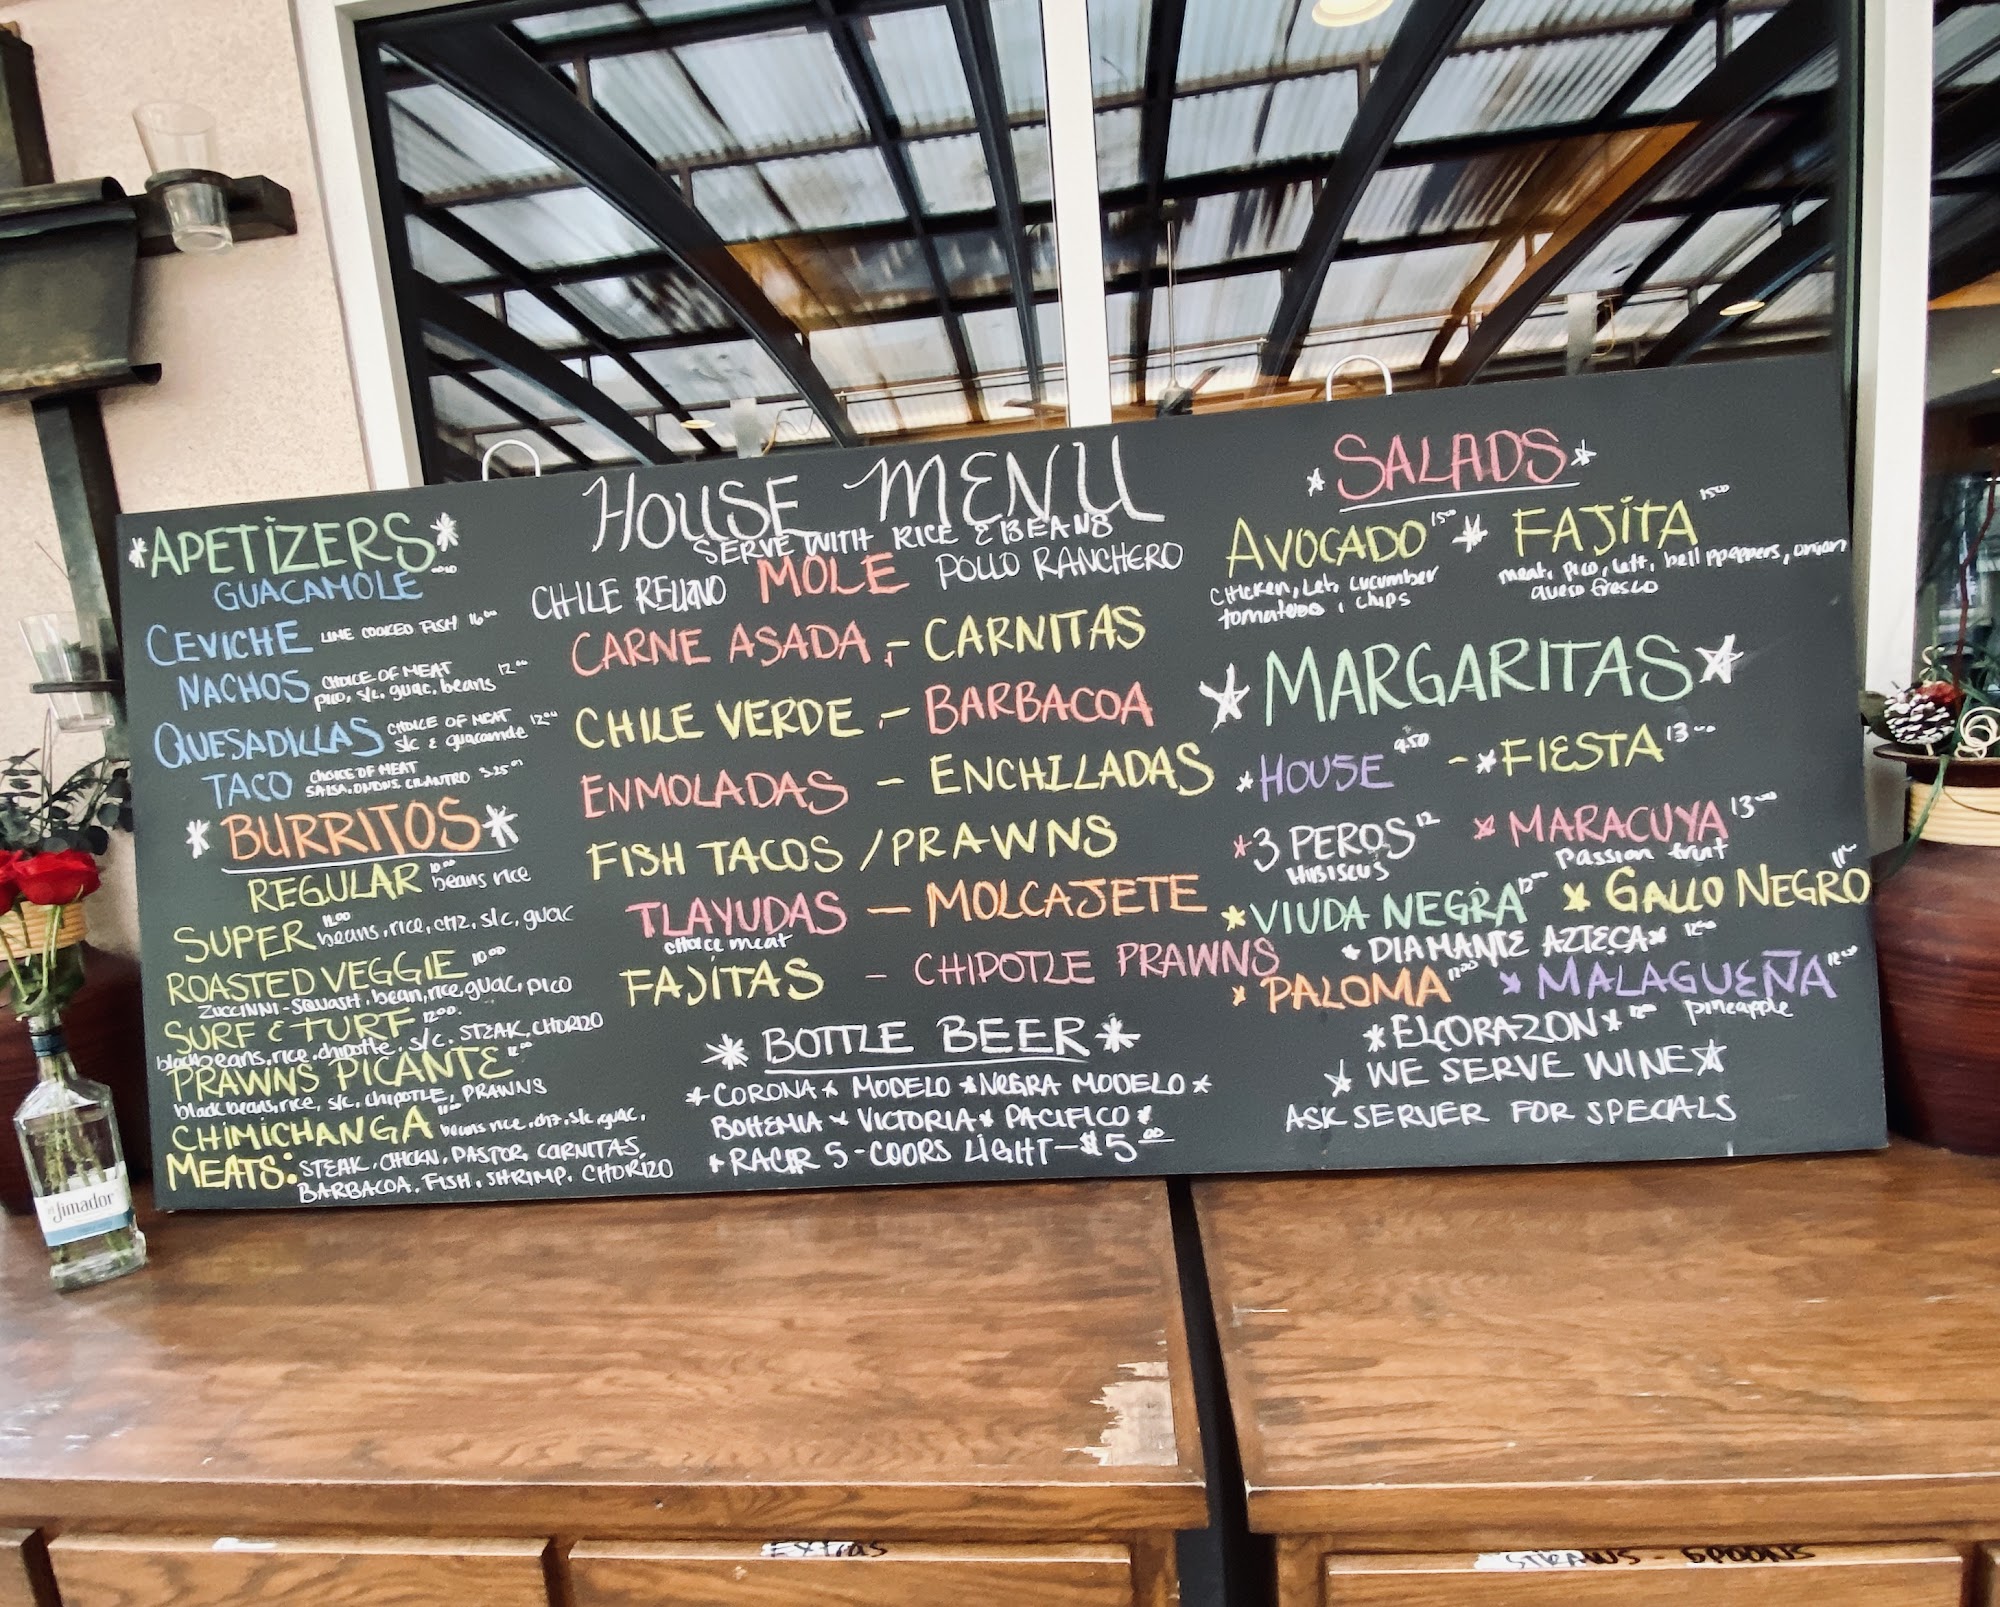 *APETIZERS*
GUACAMOLE
CEVICHE LIME COOKED FISH 16 00
NACHOS CHOICE OF MEAT 12 00
PICO, s/c, guac, beans
QUESADILLAS CHOICE OF MEAT 12 00
s/c & guacamole
TACO CHOICE OF MEAT 3.25
SALSA, ONIONS, CILANTRO
*BURRITOS*
REGULAR 10.00 beans rice
SUPER 11.00 beans, rice, chz, s/c, guac
ROASTED VEGGIE 10 00
ZUCCINNI-SQUASH, bean, rice, guac, pico
SURF & TURF 12 00
black beans, rice, chipotle, s/c, STEAK, CHORIZO
PRAWNS PICANTE
black beans, rice, s/c, chipotle, PRAWNS
CHIMICHANGA beans rice, chz, s/c, guac,
MEATS: STEAK, CHICKN, PASTOR, CARNITAS,
BARBACOA, FISH, SHRIMP, CHORIZO
HOUSE MENU
SERVE WITH RICE & BEANS
CHILE RELLENO MOLE POLLO RANCHERO
CARNE ASADA - CARNITAS
CHILE VERDE - BARBACOA
ENMOLADAS - ENCHILADAS
FISH TACOS / PRAWNS
TLAYUDAS - MOLCAJETE
choice meat
FAJITAS - CHIPOTLE PRAWNS
*BOTTLE BEER*
*CORONA * MODELO * NEGRA MODELO *
BOHEMIA * VICTORIA * PACIFICO *
* RACER 5 - COORS LIGHT - $5 00
*SALADS*
AVOCADO 15 00 * FAJITA 15 00
CHICKEN, Let, cucumber
tomatoes, chips
meat, pico, lett, bell ppeppers, onion
queso fresco
*MARGARITAS*
*HOUSE 9.50 - *FIESTA 13 00
*3 PEROS 12 * MARACUYA 13 00
HIBISCUS
passion fruit
*VIUDA NEGRA 12 00 * GALLO NEGRO
*DIAMANTE AZTECA* 12 00
*PALOMA 12 00 * MALAGUEÑA 12 00
pineapple
*EL CORAZON* 12 00
*WE SERVE WINE*
ASK SERVER FOR SPECALS
el Jimador
Extras
STRAWS - SPOONS